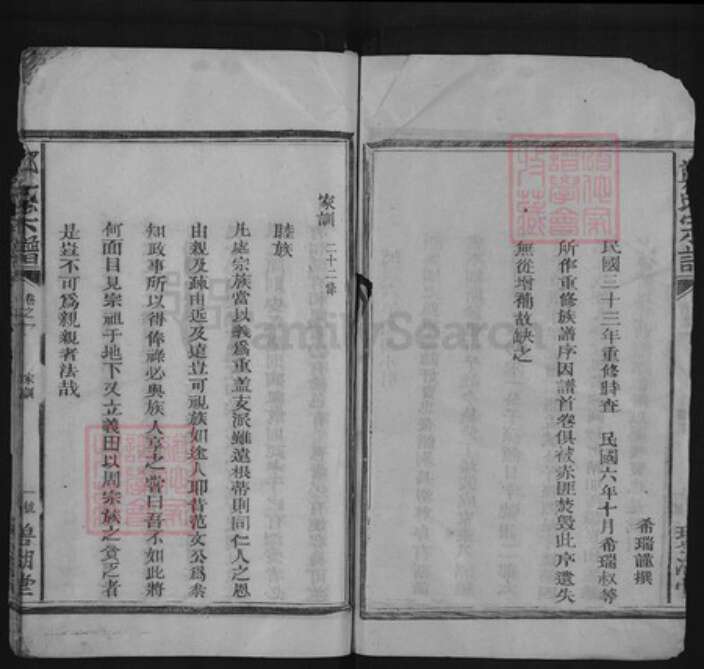 希瑞謹撰
民國三十三年重修時查 民國六年十月希瑞叔等
所作重修族譜序因譜首卷俱被赤匪焚毀此序遺失
無從增補故缺之
家訓 二十二條
睦族
凡處宗族當以義為重蓋支派雖遠根蒂則同仁人之恩
由親及疎由近及遠豈可視族如途人耶昔范文公為叅
知政事所以得俸祿必與族人享之嘗曰吾不如此將
何面目見宗祖于地下又立義田以周宗族之貧乏者
是豈不可為親親者法哉
氏宗譜
卷之一
家訓
一號
FamilySearch